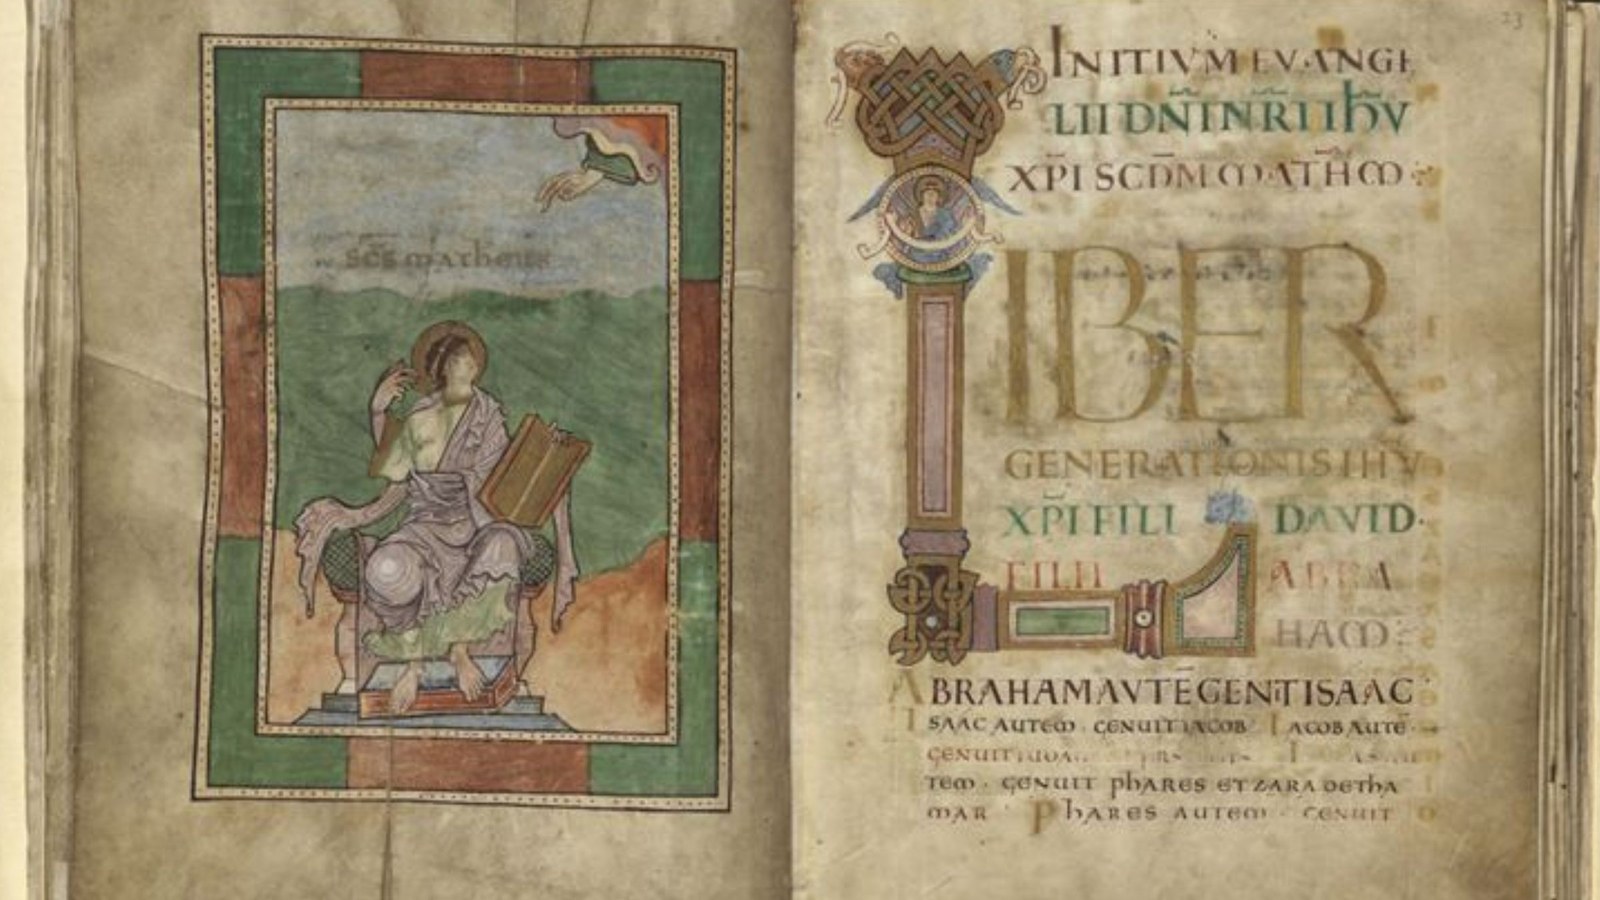 SCS MATHEUS
23
INITIVM EVANGE
LII DN̄I N̄RI IHV
XP̄I SCD̄M MATHM·
LIBER
GENERATIONIS IHV
XP̄I FILI DAVID·
FILII ABRA
HAM·
ABRAHAM AVTĒ GENUIT ISAAC·
ISAAC AUTEM · GENUIT IACOB · IACOB AUTĒ·
GENUIT IUDA
TEM · GENUIT PHARES ET ZARA DE THA
MAR · PHARES AUTEM · GENUIT